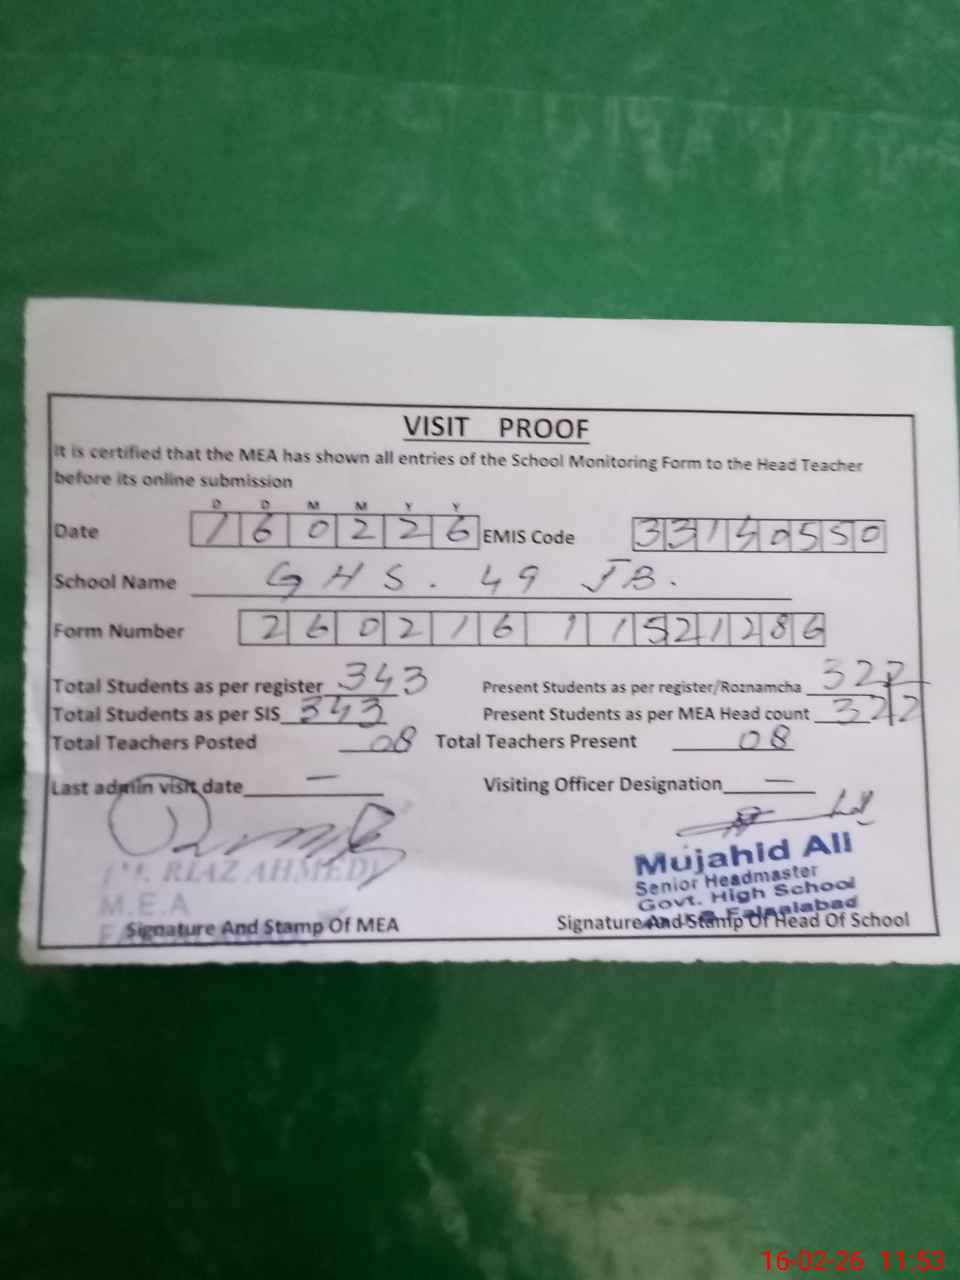 VISIT PROOF
It is certified that the MEA has shown all entries of the School Monitoring Form to the Head Teacher
before its online submission
D D M M Y Y
Date 160226 EMIS Code 33140550
School Name GHS. 49 JB.
Form Number 26021611521286
Total Students as per register 343 Present Students as per register/Roznamcha 322
Total Students as per SIS 343 Present Students as per MEA Head count 322
Total Teachers Posted 08 Total Teachers Present 08
Last admin visit date — Visiting Officer Designation —
RIAZ AHMED)
M.E.A
Mujahid Ali
Senior Headmaster
Govt. High School
Faisalabad
Signature And Stamp Of MEA Signature And Stamp Of Head Of School
16-02-26 11:53